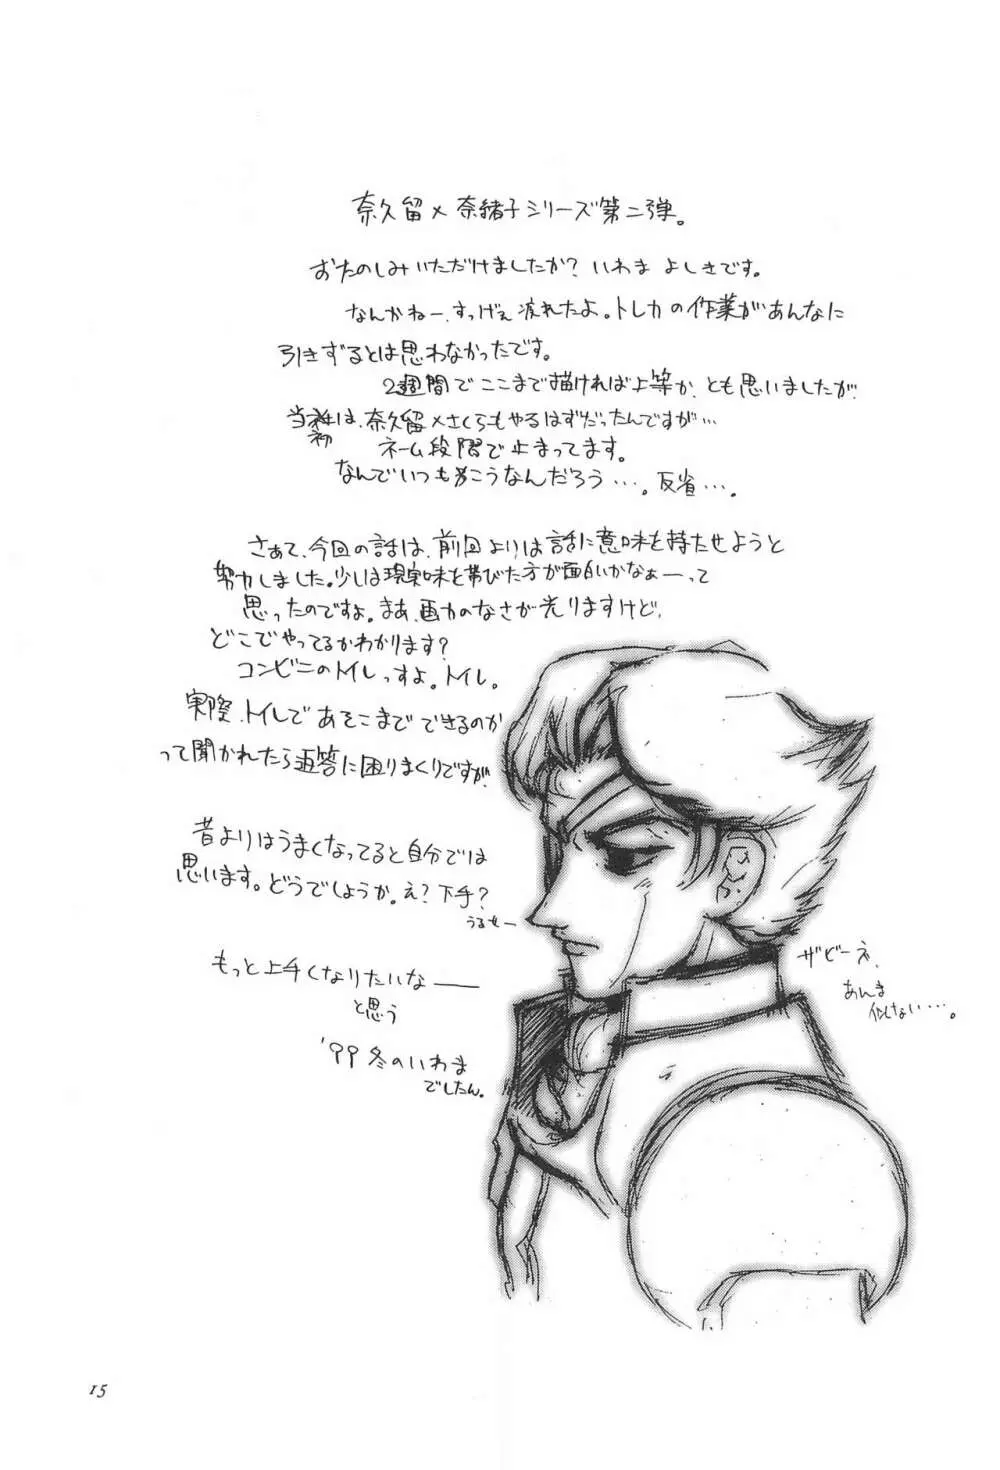 奈久留×奈緒子シリーズ第二弾。
おたのしみいただけましたか？いわま よしきです。
なんかねー、すっげぇ疲れたよ。トレカの作業があんなに
引きずるとは思わなかったです。
2週間でここまで描ければ上等か、とも思いましたが、
当初は、奈久留×さくらもやるはずだったんですが…
ネーム段階で止まってます。
なんでいつもこうなんだろう…。反省…。
さあて、今回の話は、前回よりは話に意味を持たせようと
努力しました。少しは現実味を帯びた方が面白いかなぁーって
思ったのですよ。まあ、画力のなさが光りますけど、
どこでやってるかわかります？
コンビニのトイレっすよ。トイレ。
実際、トイレであそこまでできるのか
って聞かれたら返答に困りまくりですが、
昔よりはうまくなってると自分では
思います。どうでしょうか。え？下手？
うるせー
もっと上手くなりたいなー
と思う
'99 冬のいわま
でしたん。
ザビーネ、
あんま
似てない…。
15